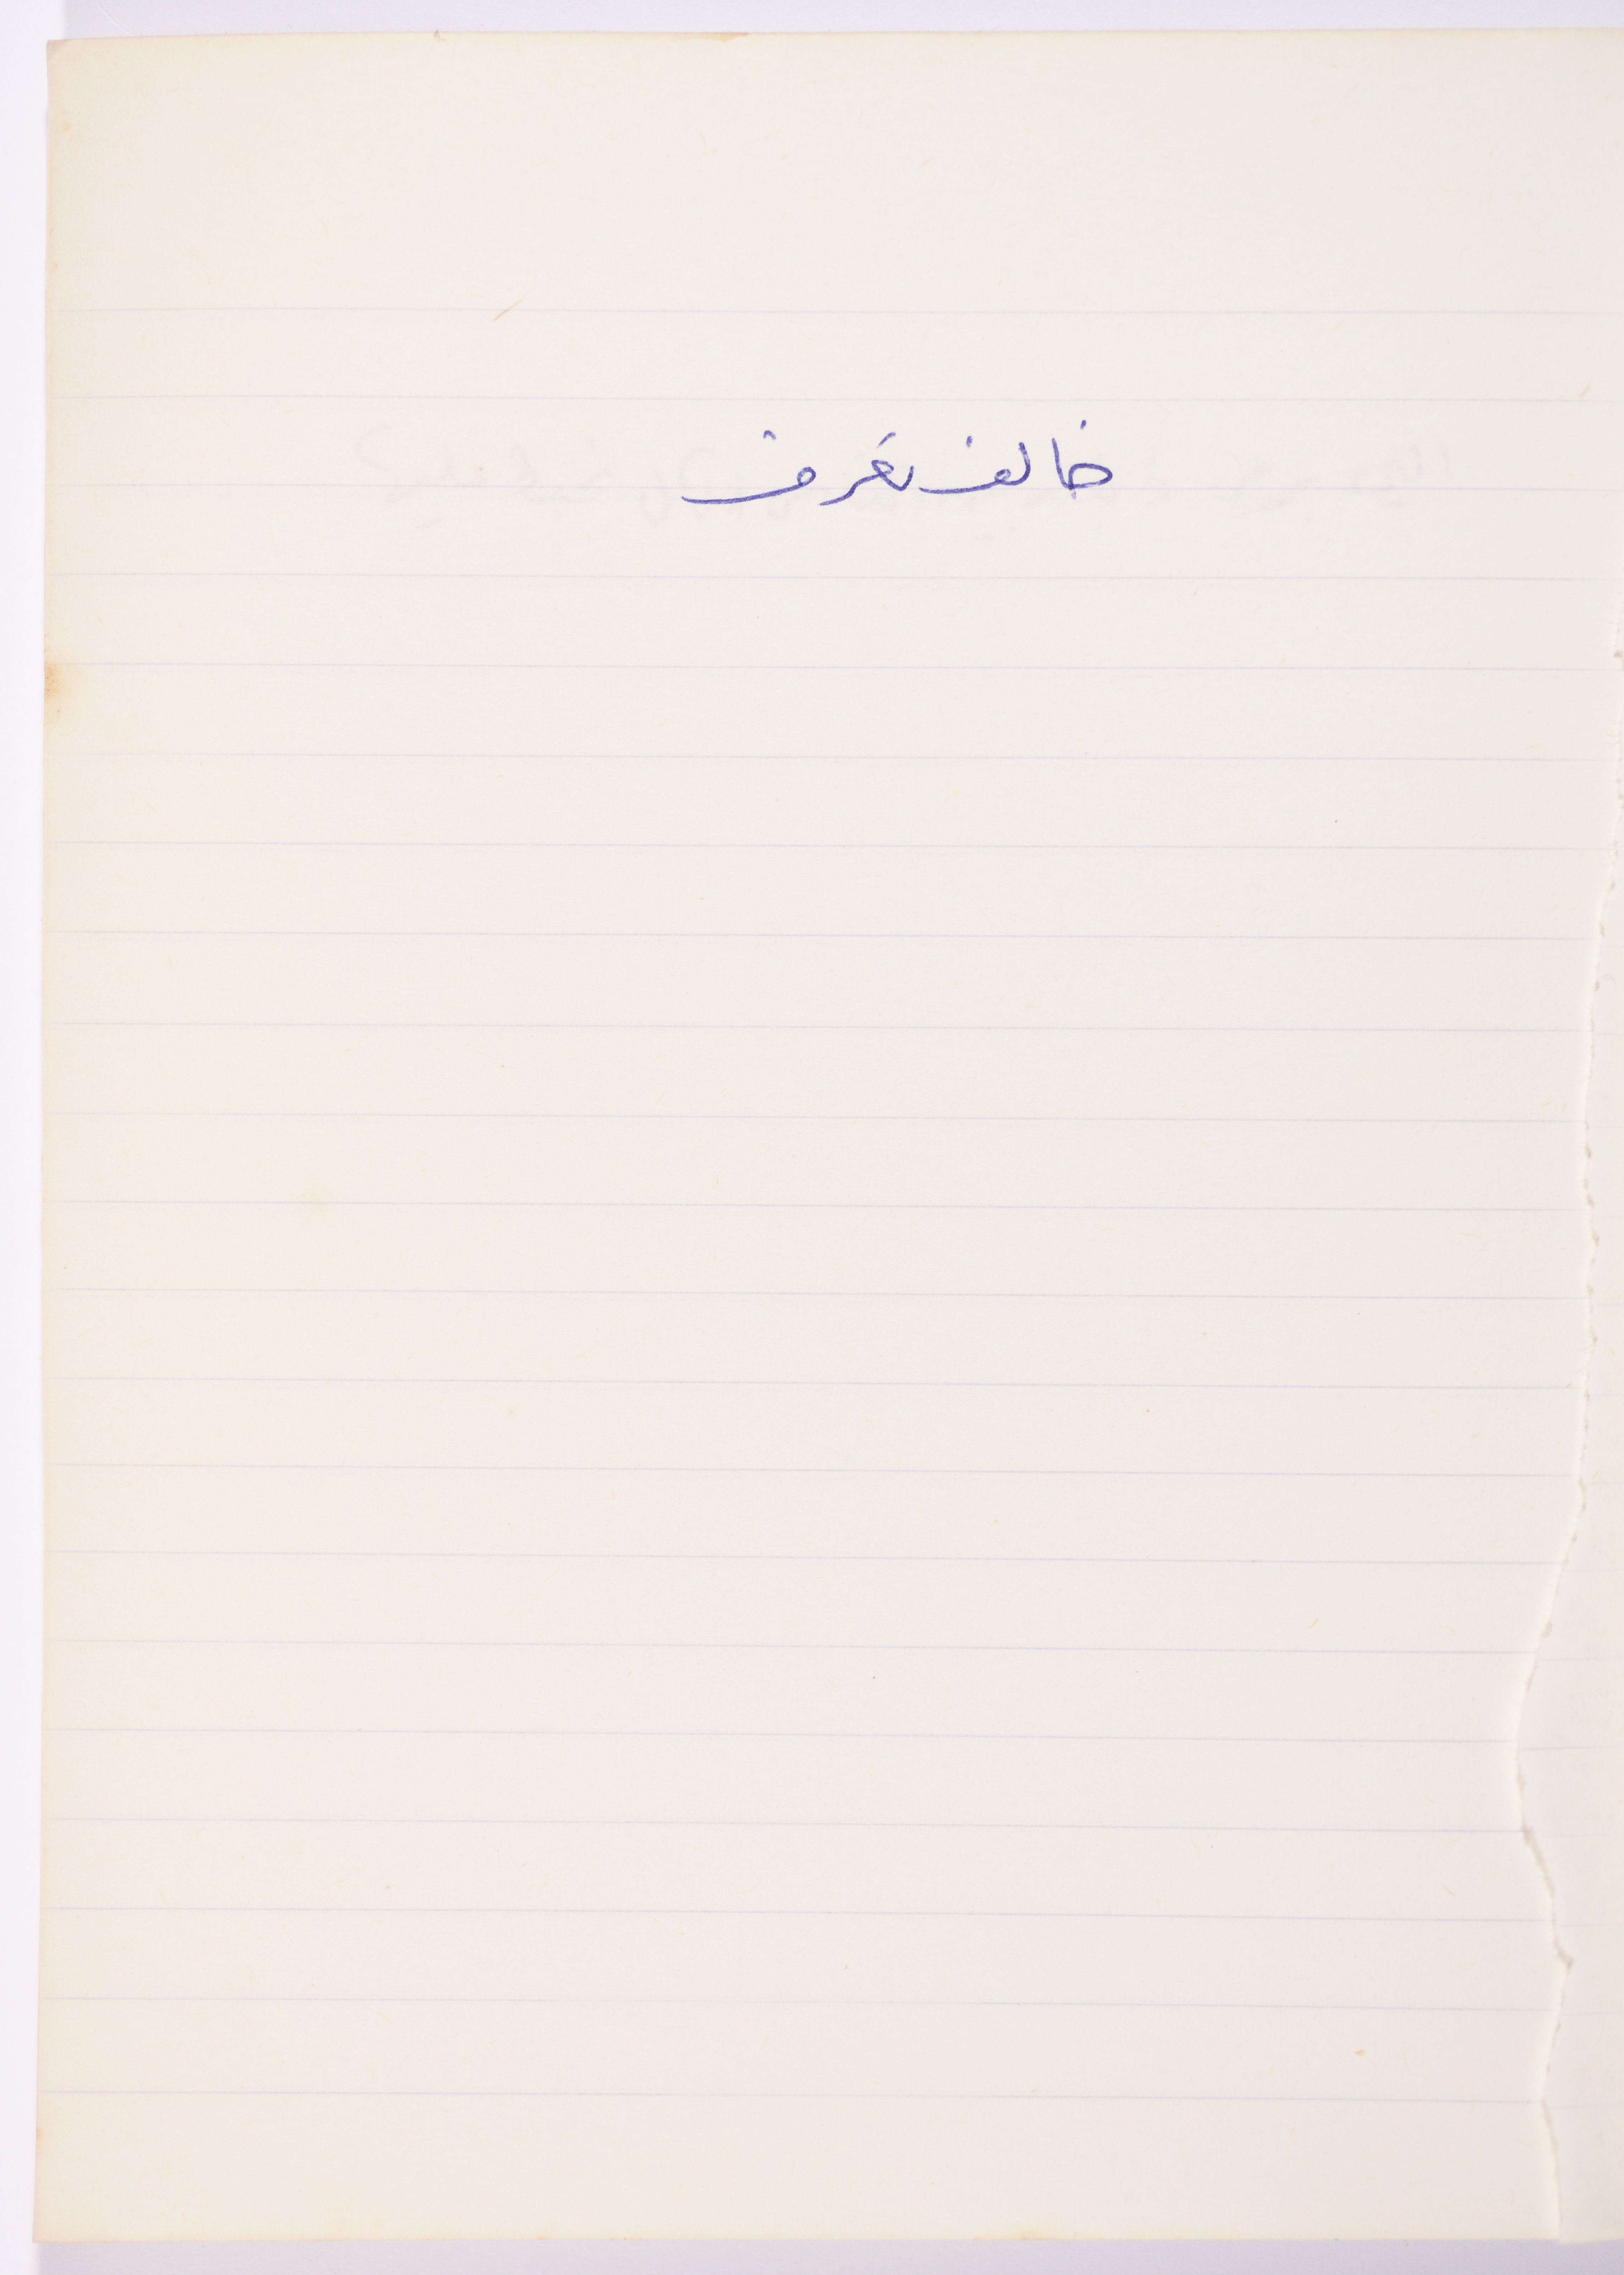 خالف تعرف